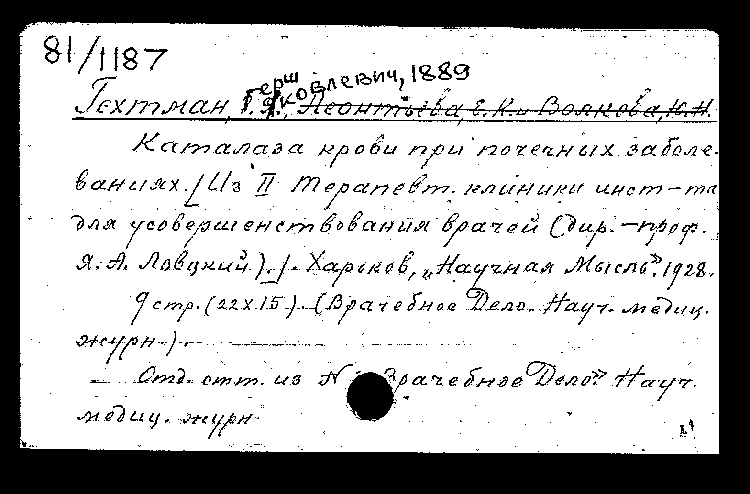 81/1187
Герш Яковлевич, 1889
Гехтман, Г. Я., Леонтьева, Е. К. и Волкова, К. Н.
Каталаза крови при почечных заболе-
ваниях. [Из II терапевт. клиники инст-та
для усовершенствования врачей (дир. - проф.
Я. А. Ловцкий).]. Харьков, „Научная Мысль". 1928.
9 стр. (22х15). (Врачебное Дело. Науч. медиц.
журн.).
— Отд. отт. из Врачебное Дело" Науч.
медиц. журн.